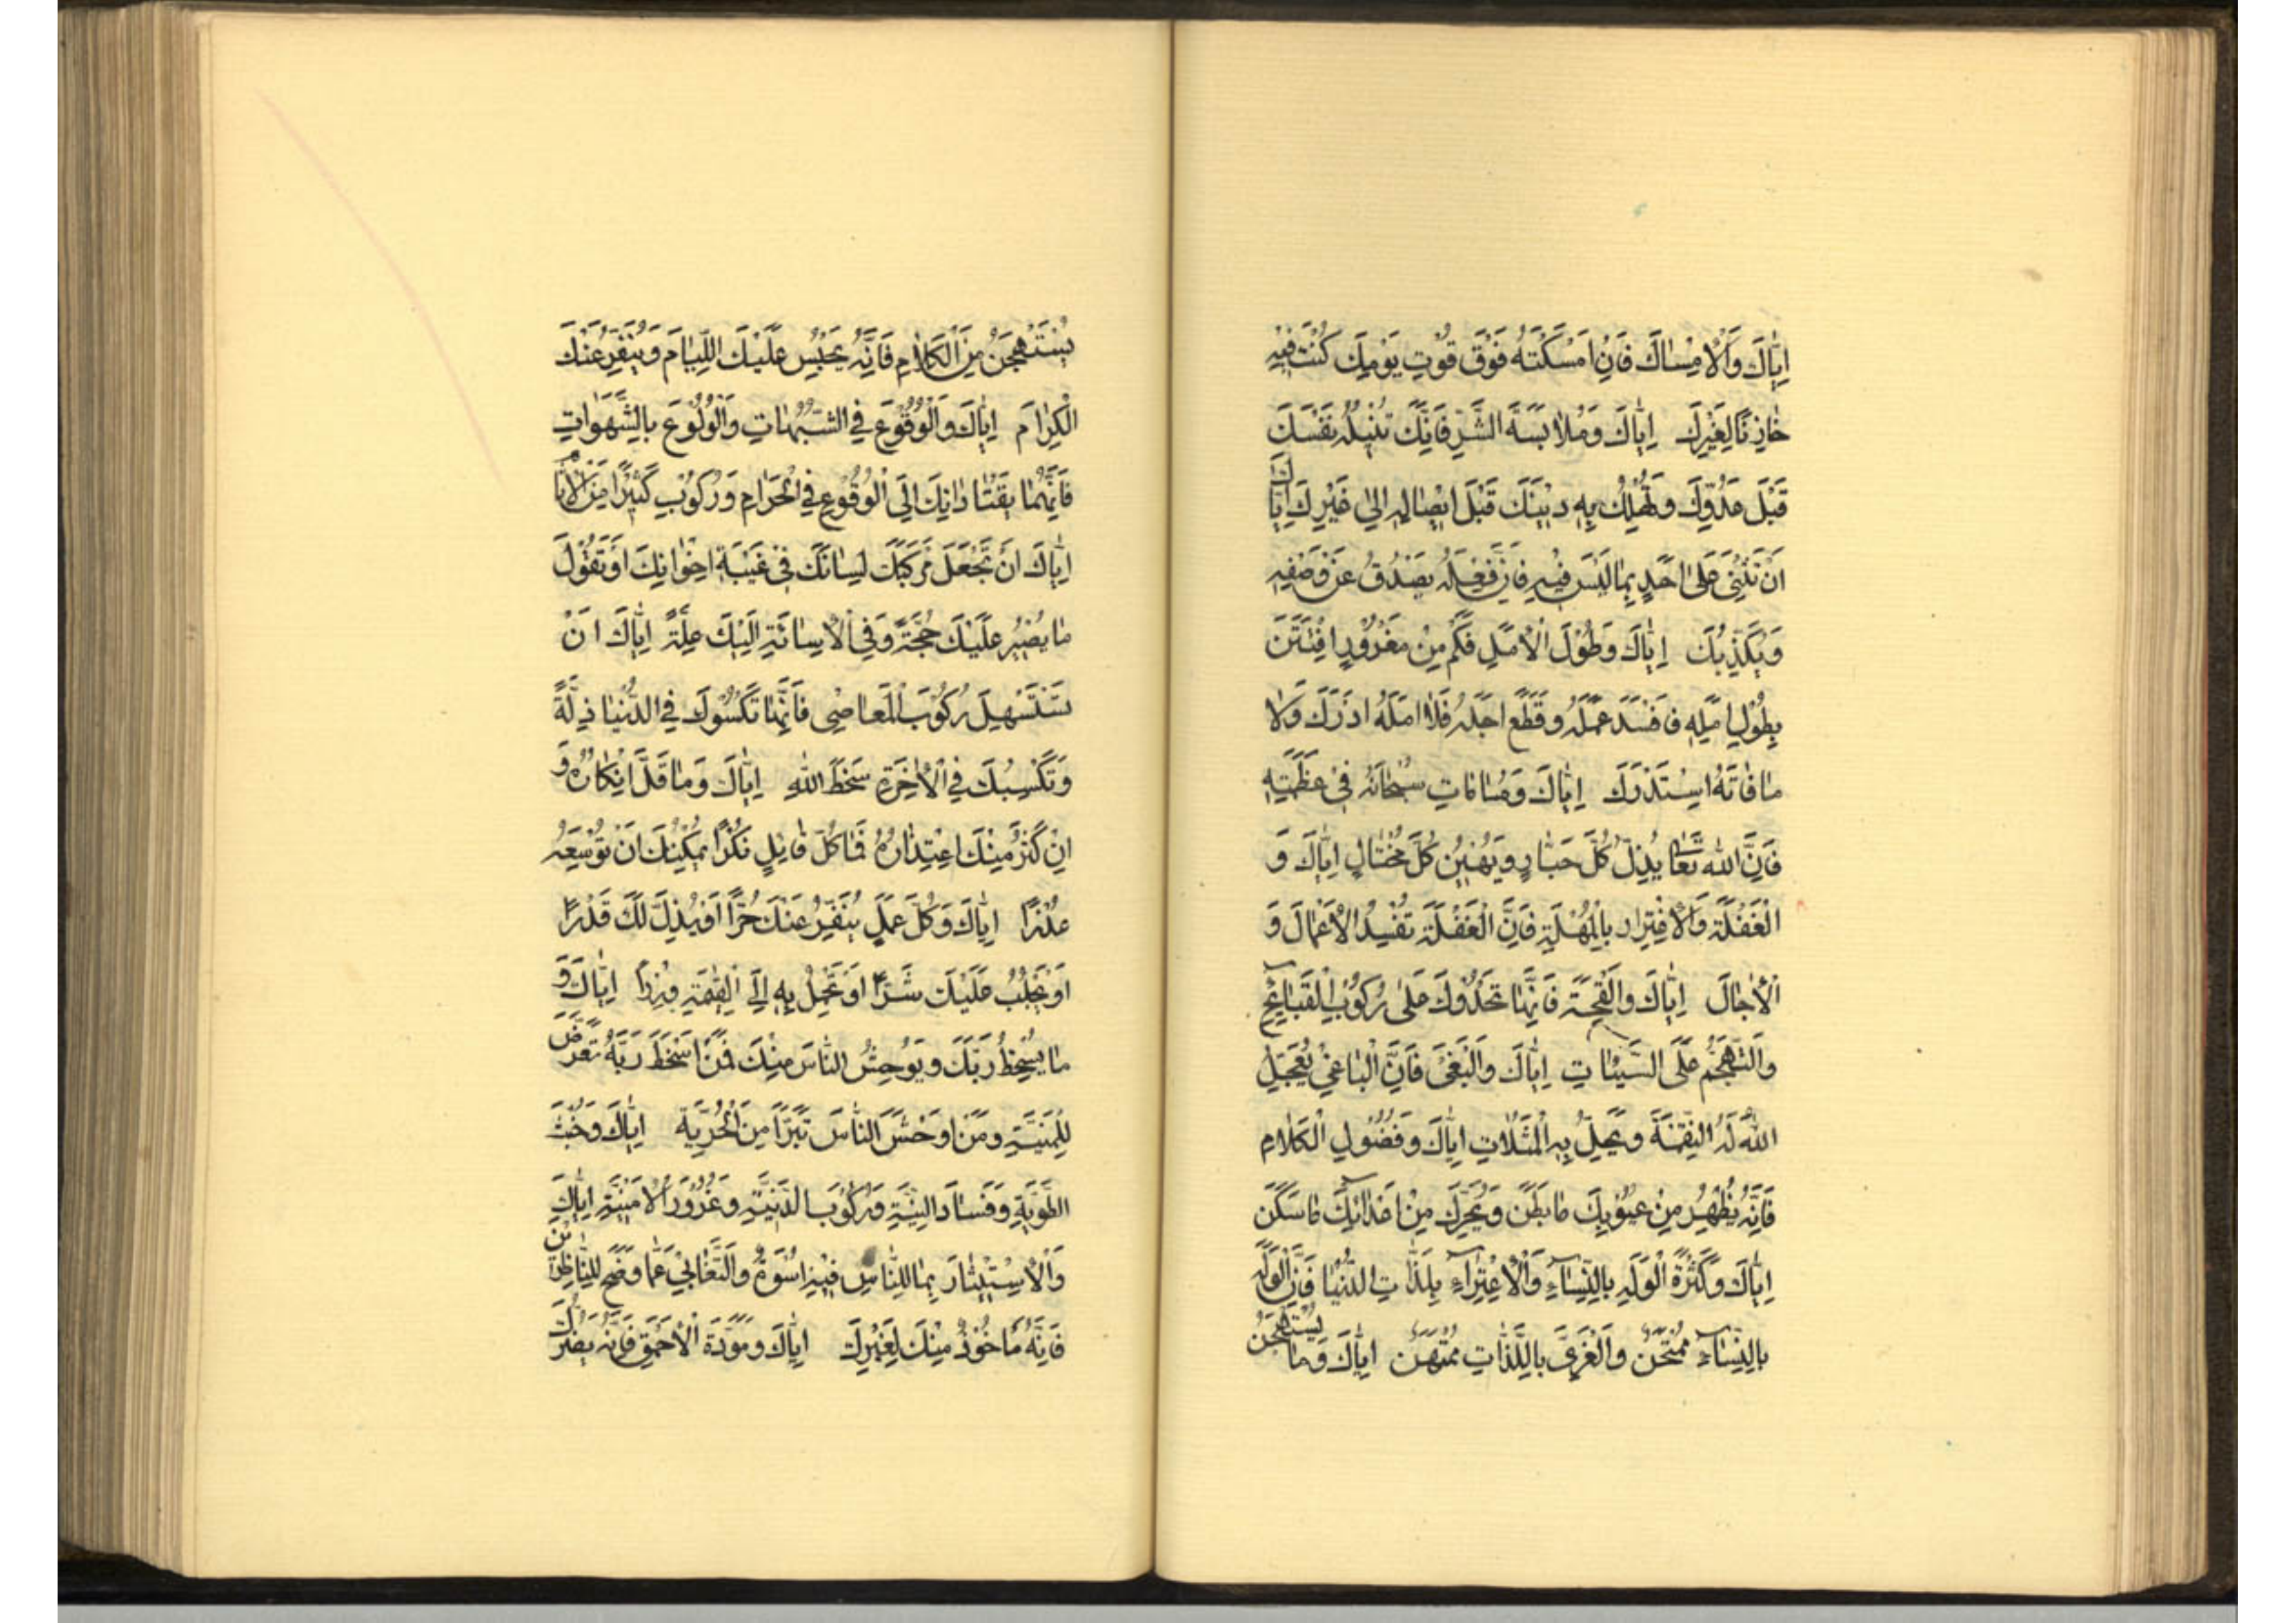 اِيّٰاكَ وَالْاِمْسٰاكَ فَاِنْ اَمْسَكْتَهُ فَوْقَ قُوْتِ يَوْمِكَ كُنْتَ فِيْهِ
خٰازِنًا لِغَيْرِكَ اِيّٰاكَ وَمُلٰابَسَةَ الشَّرِّ فَاِنَّكَ تُنِيْلُهُ نَفْسَكَ
قَبْلَ عَدُوِّكَ وَتُهْلِكُ بِهِ دِيْنَكَ قَبْلَ اِيْصٰالِهِ اِلىٰ غَيْرِكَ اِيّٰاكَ
اَنْ تُثْنِىَ عَلىٰ اَحَدٍ بِمٰا لَيْسَ فِيْهِ فَاِنَّ فِعْلَهُ يَصْدُقُ عَنْ وَصْفِهِ
وَيُكَذِّبُكَ اِيّٰاكَ وَطُوْلَ الْاَمَلِ فَكَمْ مِنْ مَغْرُوْرٍ اِفْتَتَنَ
بِطُوْلِ اَمَلِهِ فَاَفْسَدَ عَمَلَهُ وَقَطَعَ اَجَلَهُ فَلٰا اَمَلَهُ اَدْرَكَ وَلٰا
مٰا فٰاتَهُ اسْتَدْرَكَ اِيّٰاكَ وَمُسٰامٰاتِ سُبْحٰانَهُ فِىْ عَظَمَتِهِ
فَاِنَّ اللّٰهَ تَعٰا يُذِلُّ كُلَّ جَبّٰارٍ وَيُهِيْنُ كُلَّ مُخْتٰالٍ اِيّٰاكَ وَ
الْغَفْلَةَ وَالْاِغْتِرٰارَ بِالْمُهْلَةِ فَاِنَّ الْغَفْلَةَ تُفْسِدُ الْاَعْمٰالَ وَ
الْاٰجٰالَ اِيّٰاكَ وَالْقِحَةَ فَاِنَّهٰا تَحْدُوْكَ عَلىٰ رُكُوْبِ الْقَبٰائِحِ
وَالتَّهَجُّمِ عَلَى السَّيِّئٰاتِ اِيّٰاكَ وَالْبَغْىَ فَاِنَّ الْبٰاغِىَ يُعَجِّلُ
اللّٰهُ لَهُ النِّقْمَةَ وَيُحِلُّ بِهِ الْمَثُلٰاتِ اِيّٰاكَ وَفُضُوْلَ الْكَلٰامِ
فَاِنَّهُ يُظْهِرُ مِنْ عُيُوْبِكَ مٰا بَطَنَ وَيُحَرِّكُ مِنْ اَعْدٰائِكَ مٰا سَكَنَ
اِيّٰاكَ وَكَثْرَةَ الْوَلَهِ بِالنِّسٰاءِ وَالْاِغْتِرٰاءِ بِلَذّٰاتِ الدُّنْيٰا فَاِنَّ الْوَلِهَ
بِالنِّسٰاءِ مُمْتَحَنٌ وَالْغَرِىَّ بِاللَّذّٰاتِ مُمْتَهَنٌ اِيّٰاكَ وَمٰا يُسْتَهْجَنُ
يُسْتَهْجَنُ مِنَ الْكَلٰامِ فَاِنَّهُ يَحْبِسُ عَلَيْكَ اللِّئٰامَ وَيُنَفِّرُ عَنْكَ
الْكِرٰامَ اِيّٰاكَ وَالْوُقُوْعَ فِى الشُّبُهٰاتِ وَالْوُلُوْعَ بِالشَّهَوٰاتِ
فَاِنَّهُمٰا يَقْتٰادٰانِكَ اِلَى الْوُقُوْعِ فِى الْحَرٰامِ وَرُكُوْبِ كَثِيْرًا مِنَ الْاٰثٰام
اِيّٰاكَ اَنْ تَجْعَلَ مَرْكَبَكَ لِسٰانَكَ فِىْ غَيْبَةِ اِخْوٰانِكَ اَوْ تَقُوْلَ
مٰا يَصِيْرُ عَلَيْكَ حُجَّةً وَفِى الْاِسٰائَةِ اِلَيْكَ عِلَّةً اِيّٰاكَ اَنْ
تَسْتَسْهِلَ رُكُوْبَ الْمَعٰاصِى فَاِنَّهٰا تَكْسُوْكَ فِى الدُّنْيٰا ذِلَّةً
وَتَكْسِبُكَ فِى الْاٰخِرَةِ سَخَطَ اللّٰهِ اِيّٰاكَ وَمٰا قَلَّ اِنْكٰارُهُ وَ
اِنْ كَثُرَ مِنْكَ اِعْتِذٰارُهُ فَمٰا كُلُّ قٰائِلٍ نُكْرًا يُمْكِنُكَ اَنْ تُوْسِعَهُ
عُذْرًا اِيّٰاكَ وَكُلَّ عَمَلٍ يُنَفِّرُ عَنْكَ حُرًّا اَوْ يُذِلُّ لَكَ قَدْرًا
اَوْ يَجْلِبُ عَلَيْكَ شَرًّا اَوْ تَحْمِلُ بِهِ اِلَى الْقِيٰمَةِ وِزْرًا اِيّٰاكَ وَ
مٰا يُسْخِطُ رَبَّكَ وَيُوْحِشُ النّٰاسَ مِنْكَ فَمَنْ اَسْخَطَ رَبَّهُ تَعَرَّضَ
لِلْمَنِيَّةِ وَمَنْ اَوْحَشَ النّٰاسَ تَبَرَّاَ مِنَ الْحُرِّيَّةِ اِيّٰاكَ وَخُبْثَ
الطَّوِيَّةِ وَفَسٰادَ النِّيَّةِ وَرُكُوْبَ الدَّنِيَّةِ وَغُرُوْرَ الْاُمْنِيَّةِ اِيّٰاكَ
وَالْاِسْتِيْثٰارَ بِمٰا لِلنّٰاسِ فِيْهِ اُسْوَةٌ وَالتَّغٰابِىَ عَمّٰا وَضَحَ لِلنّٰاظِرِيْنَ
فَاِنَّهُ مَاْخُوْذٌ مِنْكَ لِغَيْرِكَ اِيّٰاكَ وَمَوَدَّةَ الْاَحْمَقِ فَاِنَّهُ يَضُرُّكَ